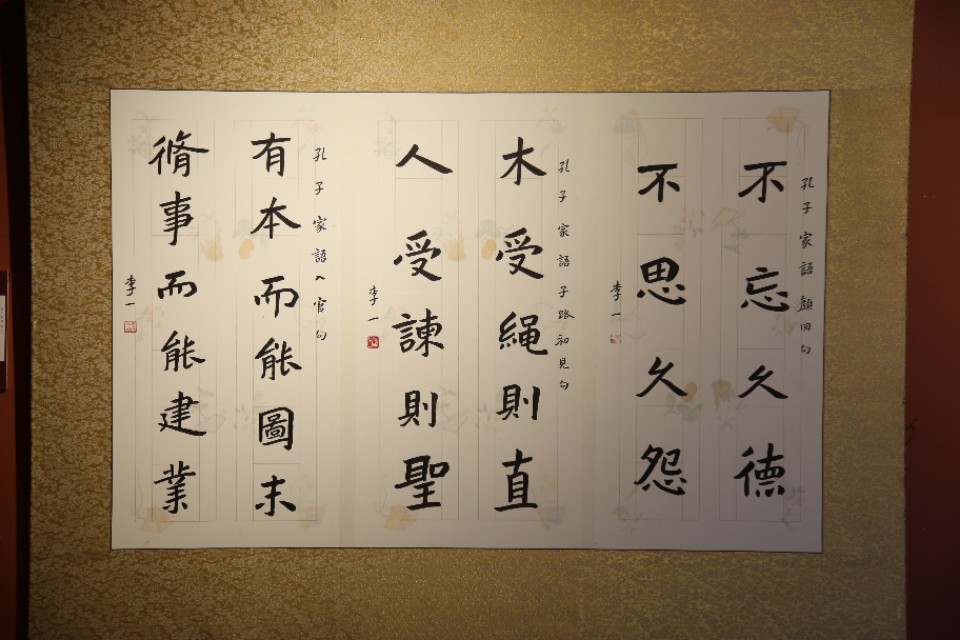 孔子家語顏回句
不忘久德
不思久怨
李一
孔子家語子路初見句
木受繩則直
人受諫則聖
李一
孔子家語入官句
有本而能圖末
脩事而能建業
李一